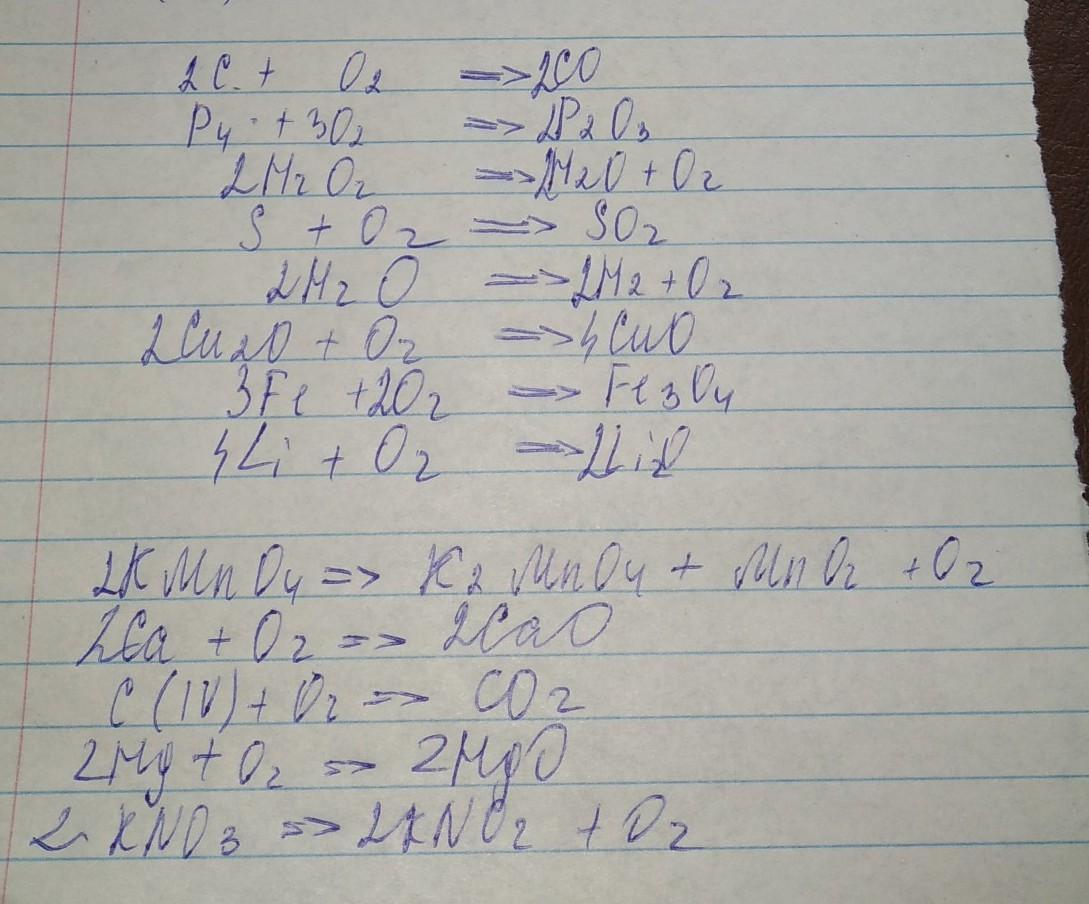 2C + O2 => 2CO
P4 + 3O2 => 2P2O3
2H2O2 => 2H2O + O2
S + O2 => SO2
2H2O => 2H2 + O2
2Cu2O + O2 => 4CuO
3Fe + 2O2 => Fe3O4
4Li + O2 => 2Li2O
2KMnO4 => K2MnO4 + MnO2 + O2
2Ca + O2 => 2CaO
C (IV) + O2 => CO2
2Mg + O2 => 2MgO
2 KNO3 => 2KNO2 + O2